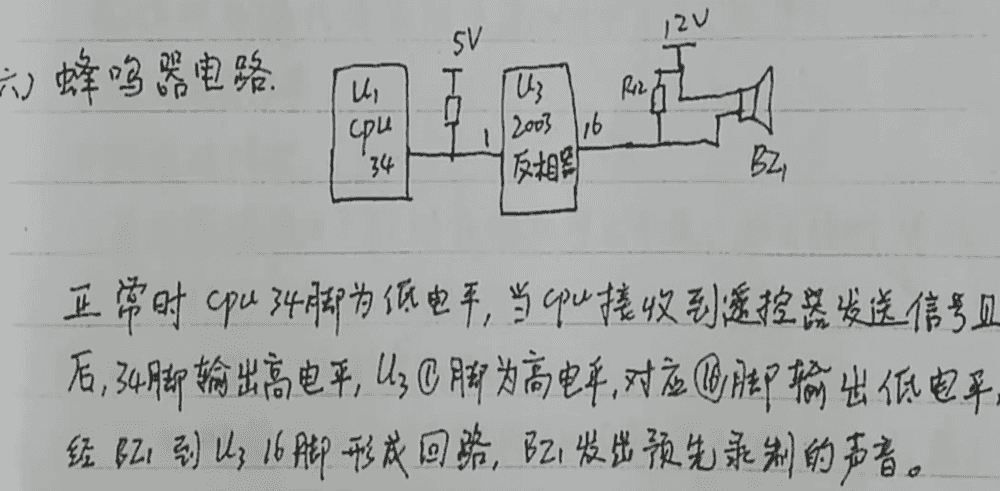 六) 蜂鸣器电路.
5V
12V
U1
CPU
34
1
U3
2003
反相器
16
R12
BZ1
正常时 CPU 34脚为低电平, 当CPU接收到遥控器发送信号且
后, 34脚输出高电平, U3 ①脚为高电平, 对应⑯脚输出低电平,
经 BZ1 到 U3 16脚形成回路, BZ1 发出预先录制的声音。